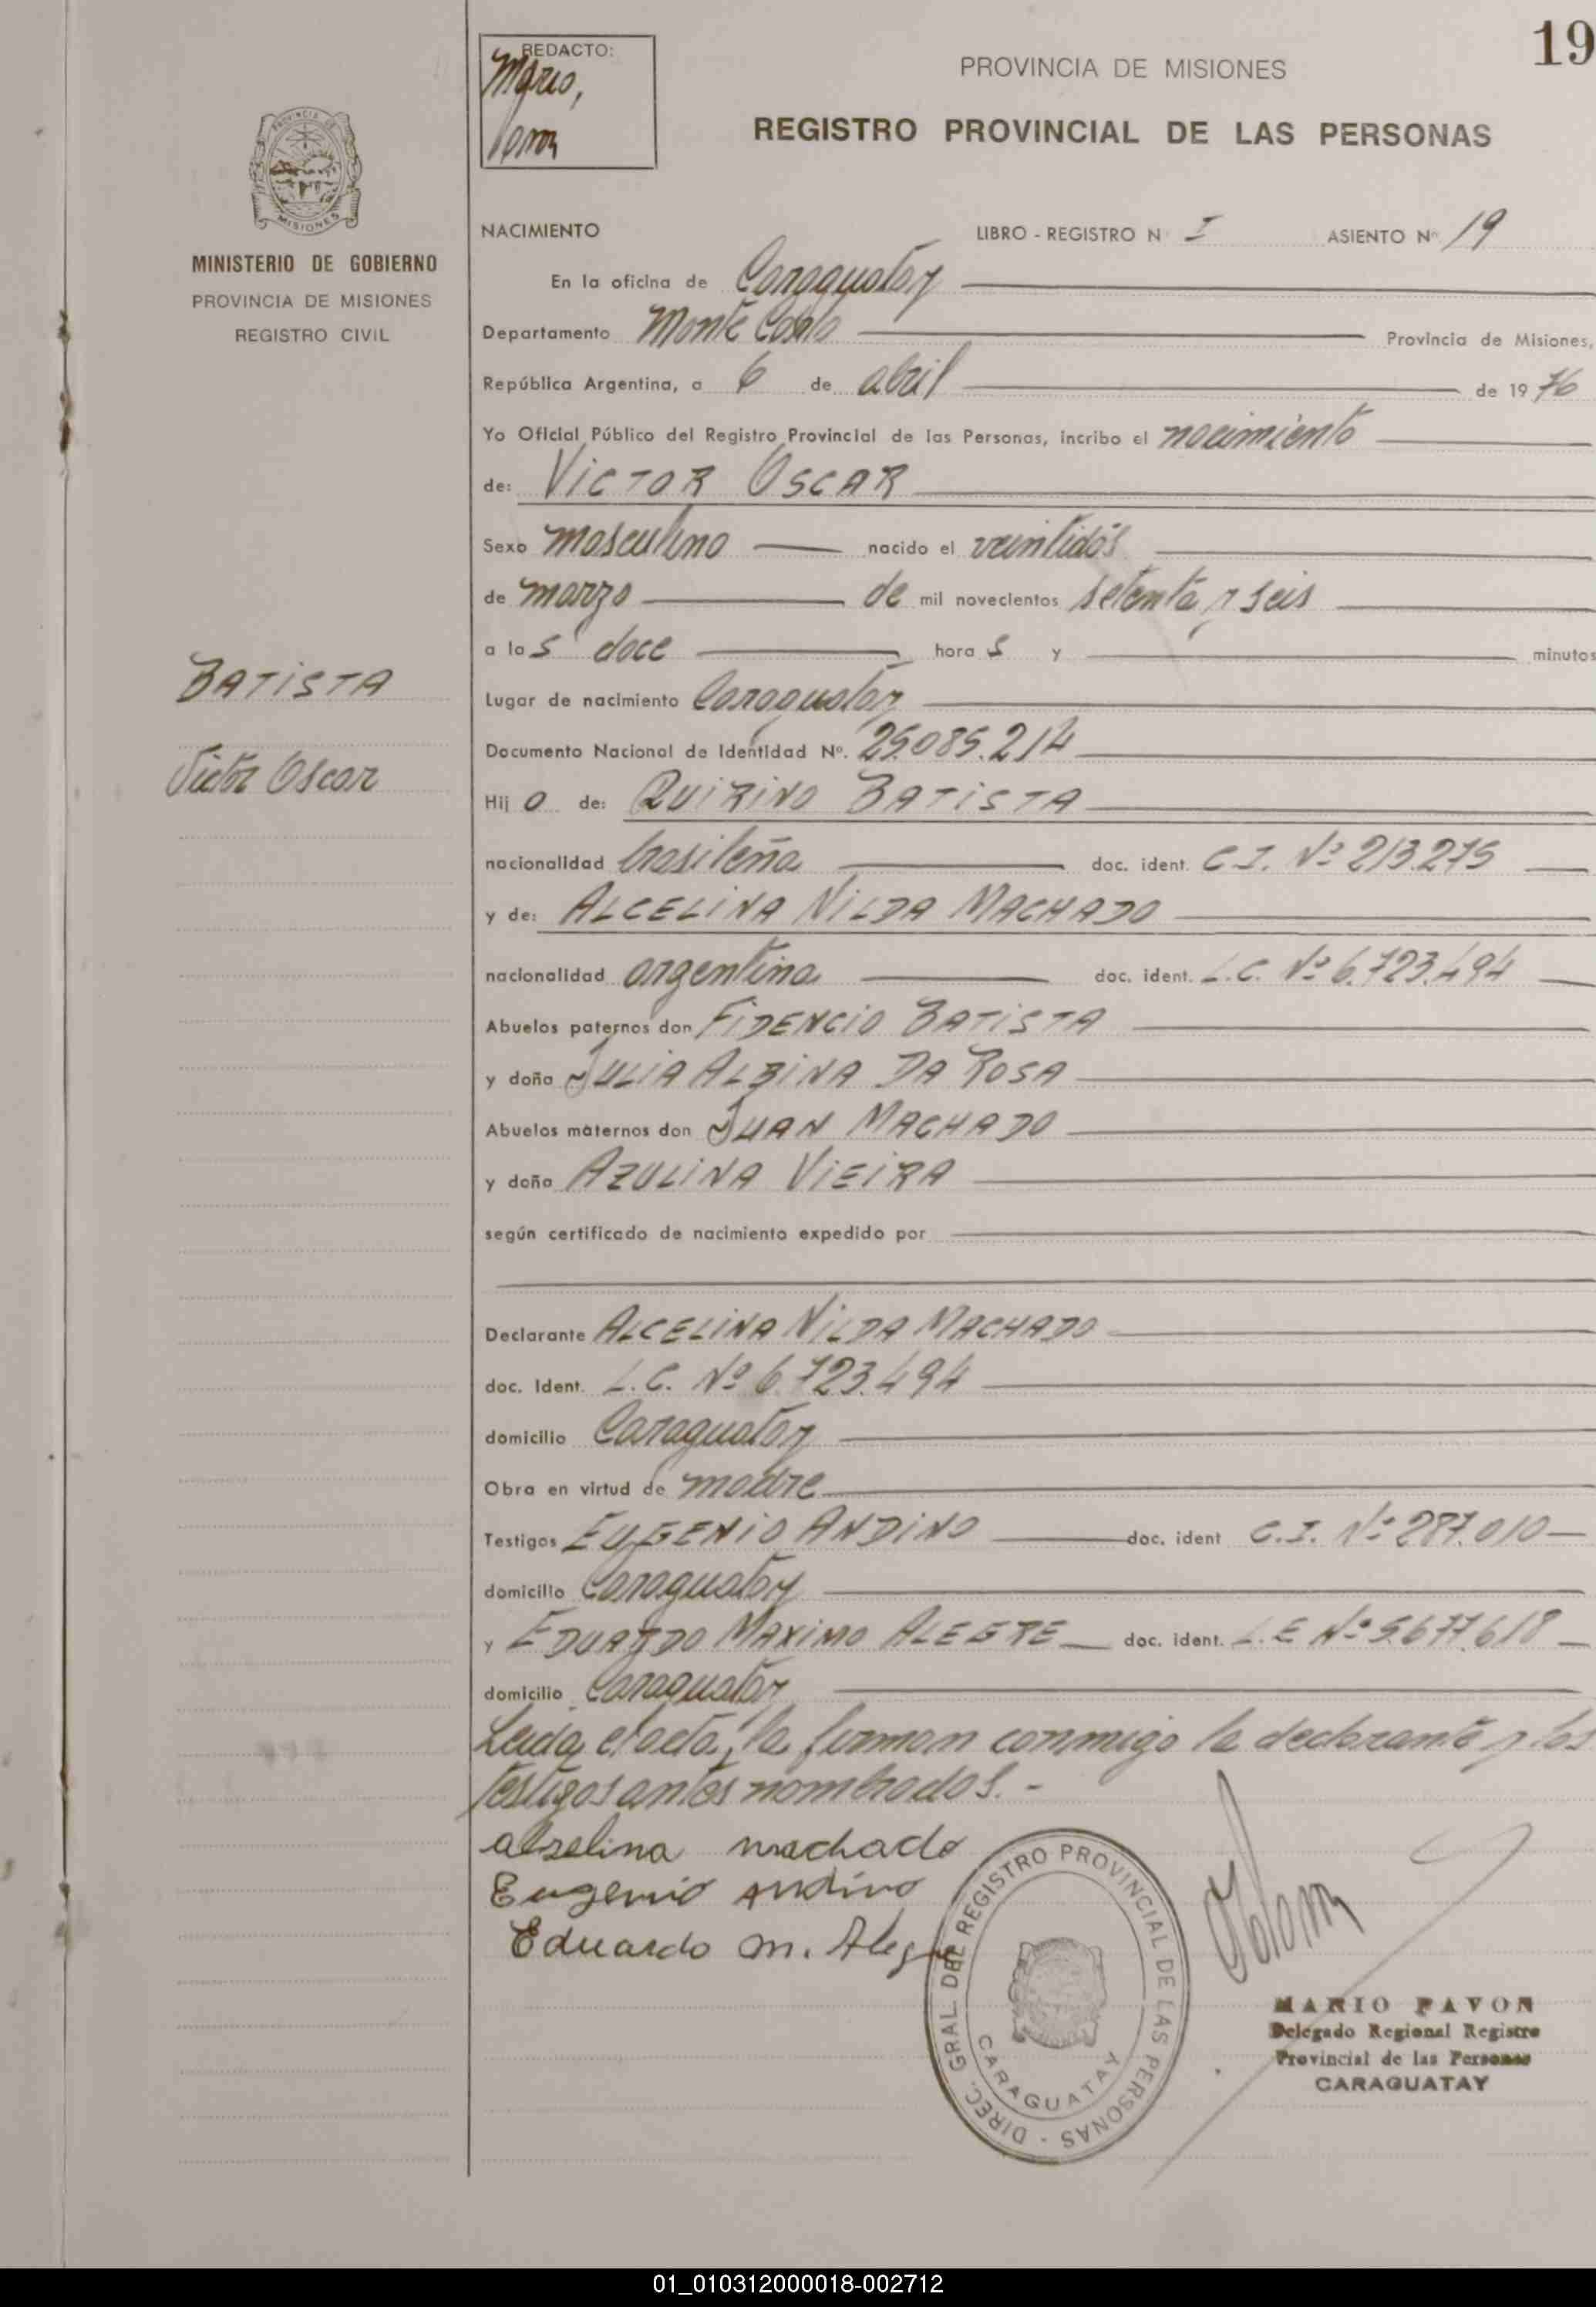 19
REDACTO:
Mario,
PROVINCIA DE MISIONES
REGISTRO PROVINCIAL DE LAS PERSONAS
PROVINCIA DE MISIONES
MINISTERIO DE GOBIERNO
PROVINCIA DE MISIONES
REGISTRO CIVIL
BATISTA
Victor Oscar
NACIMIENTO LIBRO - REGISTRO N I ASIENTO Nº 19
En la oficina de Caraguatay
Departamento Monte Carlo Provincia de Misiones,
República Argentina, a 6 de abril de 1976
Yo Oficial Público del Registro Provincial de las Personas, incribo el nacimiento
de: VICTOR OSCAR
Sexo masculino nacido el veintidós
de marzo de mil novecientos setenta y seis
a las doce horas y minutos
Lugar de nacimiento Caraguatay
Documento Nacional de Identidad Nº. 25.085.214
Hijo de: QUIRINO BATISTA
nacionalidad brasileña doc. ident. C.I. Nº 213.275
y de: ALCELINA NILDA MACHADO
nacionalidad argentina doc. ident. L.C. Nº 6.723.494
Abuelos paternos don FIDENCIO BATISTA
y doña JULIA ALBINA DA ROSA
Abuelos maternos don JUAN MACHADO
y doña AZULINA VIEIRA
según certificado de nacimiento expedido por
Declarante ALCELINA NILDA MACHADO
doc. Ident. L.C. Nº 6.723.494
domicilio Caraguatay
Obra en virtud de madre
Testigos EUGENIO ANDINO doc. ident C.I. Nº 287.010
domicilio Caraguatay
y EDUARDO MAXIMO ALEGRE doc. ident. L.E Nº 5.677.618
domicilio Caraguatay
Leida el acta, la firman conmigo la declarante y los
testigos antes nombrados.-
alselina machado
Eugenio Andino
Eduardo M. Alegre
DIREC. GRAL DEL REGISTRO PROVINCIAL DE LAS PERSONAS -
CARAGUATAY
MARIO PAVON
Delegado Regional Registro
Provincial de las Personas
CARAGUATAY
01_010312000018-002712